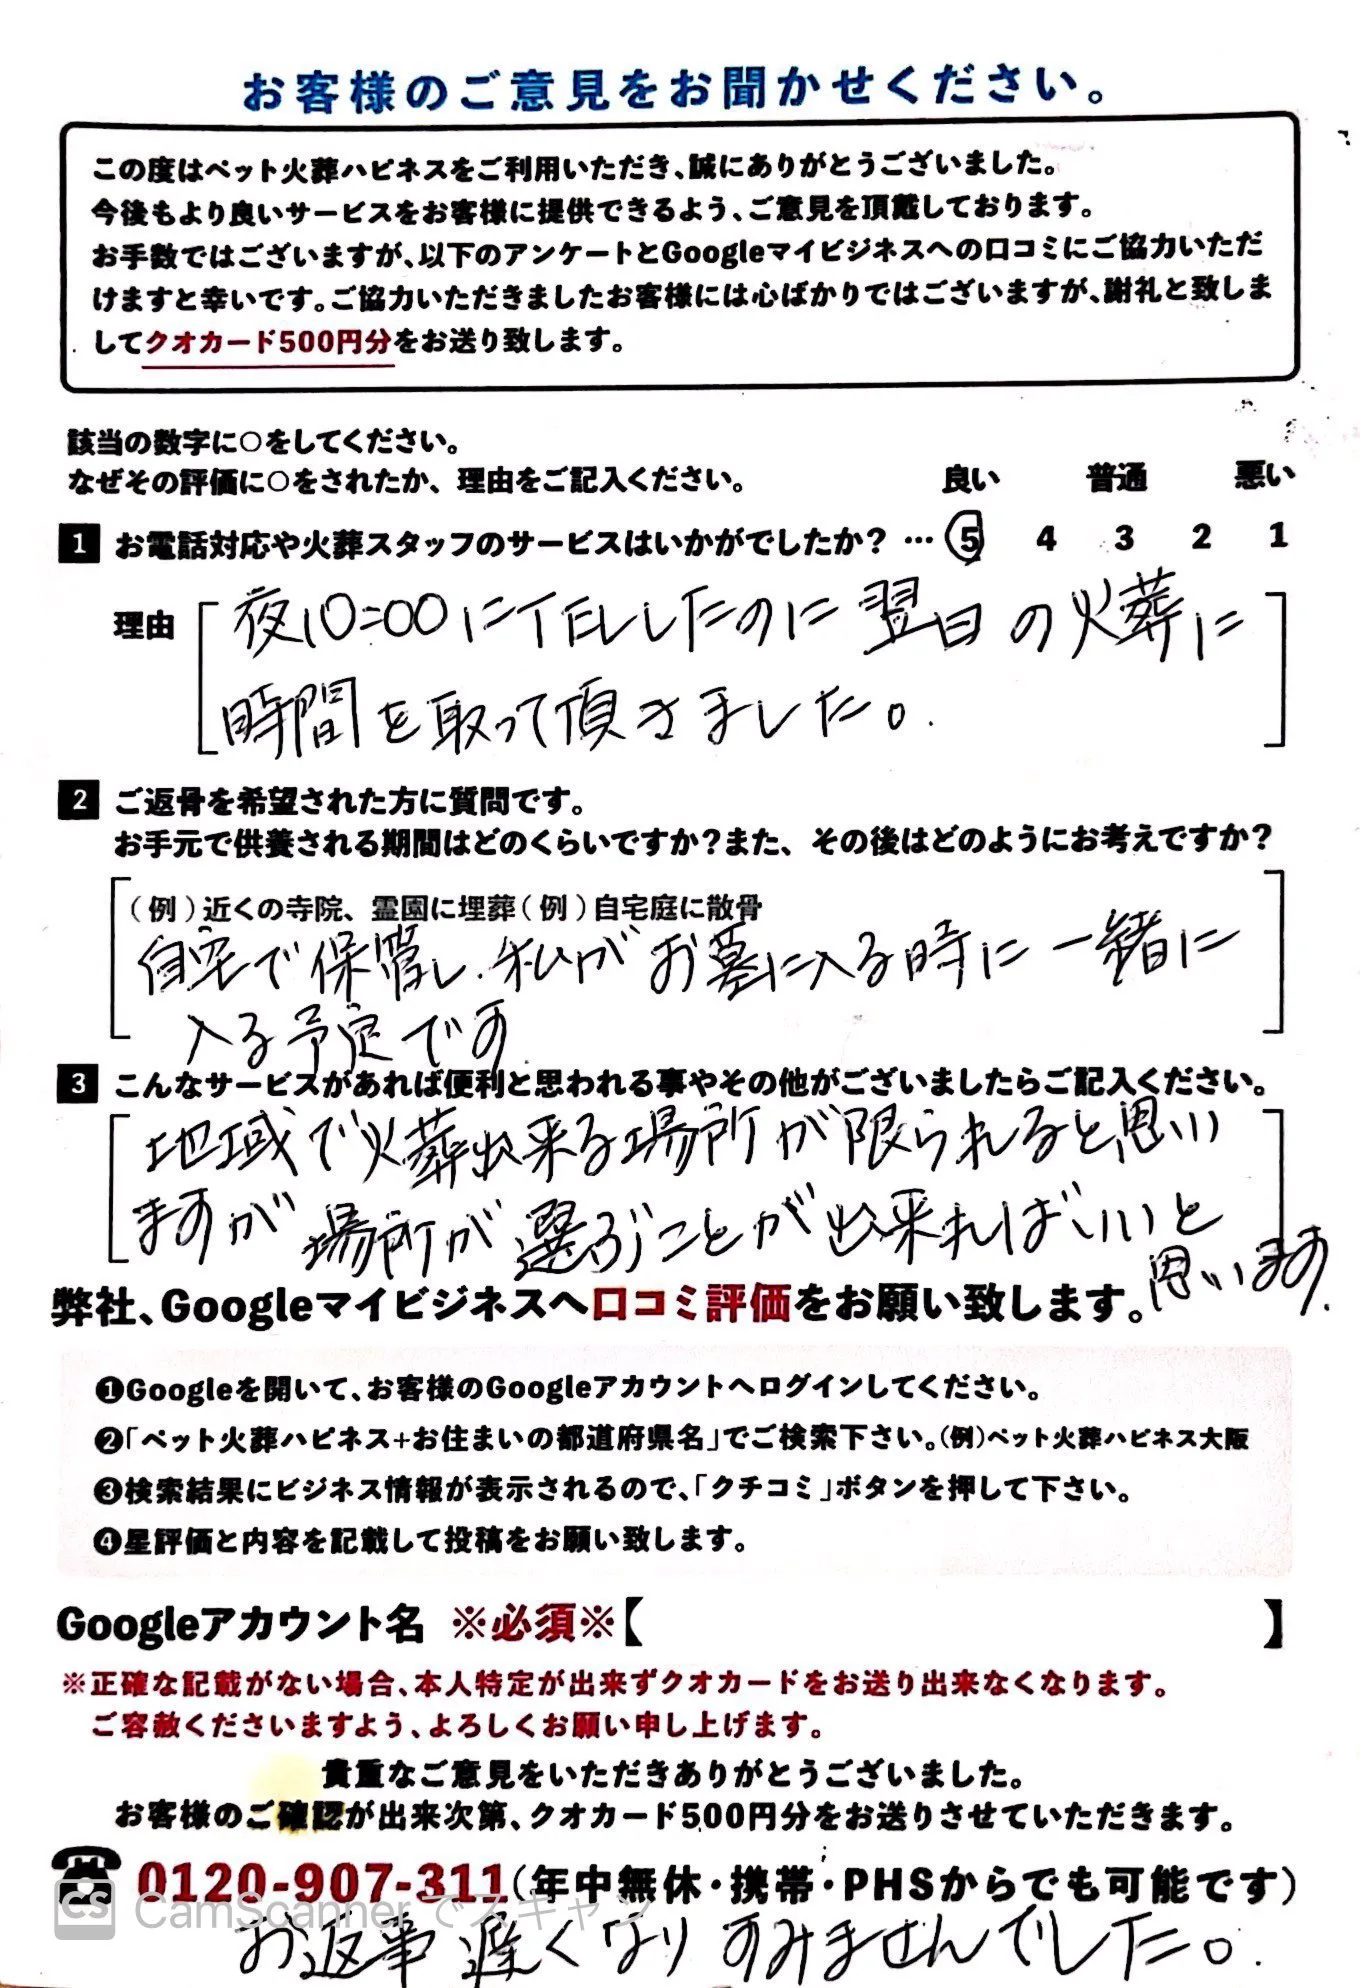 お客様のご意見をお聞かせください。
この度はペット火葬ハピネスをご利用いただき、誠にありがとうございました。
今後もより良いサービスをお客様に提供できるよう、ご意見を頂戴しております。
お手数ではございますが、以下のアンケートとGoogleマイビジネスへの口コミにご協力いただ
けますと幸いです。ご協力いただきましたお客様には心ばかりではございますが、謝礼と致しま
してクオカード500円分をお送り致します。
該当の数字に○をしてください。
なぜその評価に○をされたか、理由をご記入ください。 良い 普通 悪い
1 お電話対応や火葬スタッフのサービスはいかがでしたか? … 5 4 3 2 1
理由 夜10:00にTELしたのに翌日の火葬に
時間を取って頂きました。
2 ご返骨を希望された方に質問です。
お手元で供養される期間はどのくらいですか?また、その後はどのようにお考えですか?
(例)近くの寺院、霊園に埋葬(例)自宅庭に散骨
自宅で保管し、私がお墓に入る時に一緒に
入る予定です
3 こんなサービスがあれば便利と思われる事やその他がございましたらご記入ください。
地域で火葬出来る場所が限られると思い
ますが場所が選ぶことが出来ればいいと
思います.
弊社、Googleマイビジネスへ口コミ評価をお願い致します。
❶Googleを開いて、お客様のGoogleアカウントへログインしてください。
❷「ペット火葬ハピネス+お住まいの都道府県名」でご検索下さい。(例)ペット火葬ハピネス大阪
❸検索結果にビジネス情報が表示されるので、「クチコミ」ボタンを押して下さい。
❹星評価と内容を記載して投稿をお願い致します。
Googleアカウント名 ※必須※【 】
※正確な記載がない場合、本人特定が出来ずクオカードをお送り出来なくなります。
ご容赦くださいますよう、よろしくお願い申し上げます。
貴重なご意見をいただきありがとうございました。
お客様のご確認が出来次第、クオカード500円分をお送りさせていただきます。
0120-907-311(年中無休・携帯・PHSからでも可能です)
CS CamScannerでスキャン
お返事遅くなりすみませんでした。